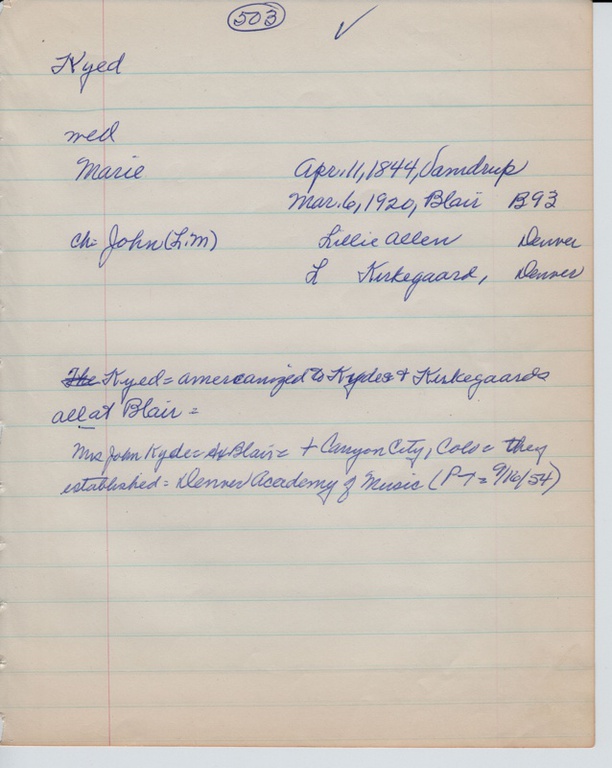 503 ✓
Kyed
wed
Marie Apr. 11, 1844, Jamdrup
Mar. 6, 1920, Blair B93
Ch- John (L.M) Lillie Allen Denver
L Kirkegaard, Denver
The Kyed = americanized to Kyde & Kirkegaards
all at Blair =
Mrs John Kyde = Blair = + Canyon City, Colo = they
established = Denver Academy of Music (P-T = 9/16/54)